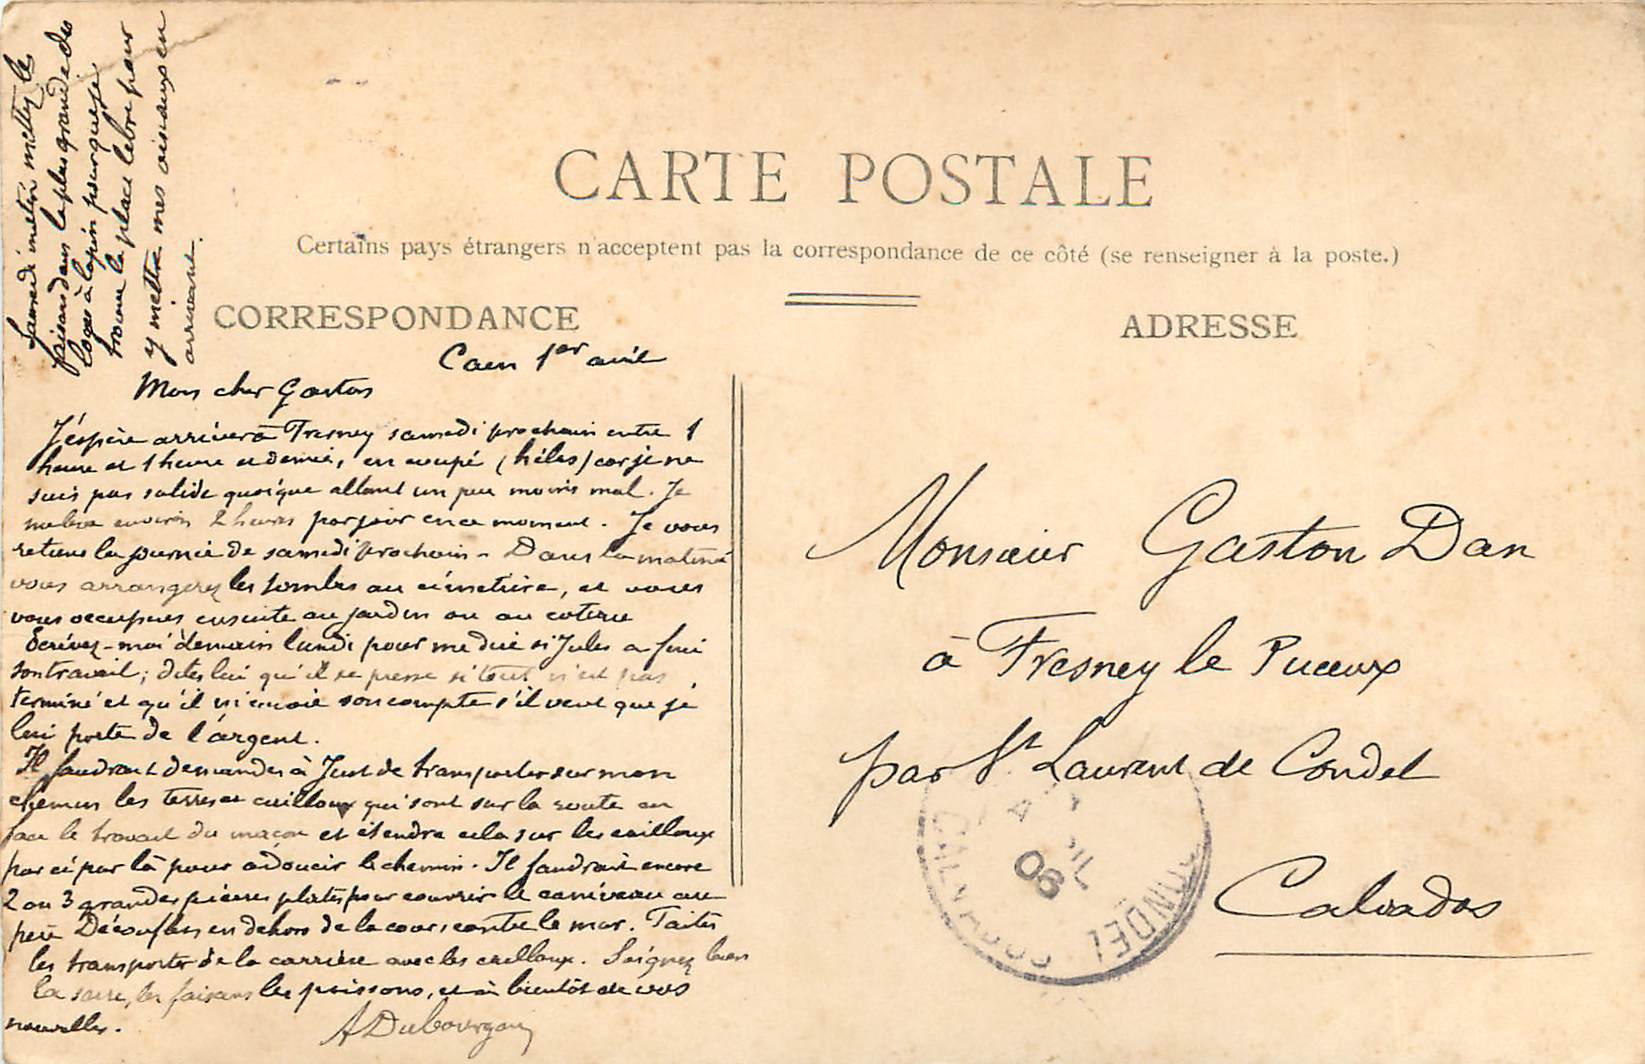 CARTE POSTALE
Certains pays étrangers n'acceptent pas la correspondance de ce côté (se renseigner à la poste.)
CORRESPONDANCE
ADRESSE
Caen 1er avril
Mon cher Gaston
J'éspère arriver à Fresney samedi prochain entre 1
heure et 1 heure et demie, en coupé (hélas) car je ne
suis pas solide quoique allant un peu moins mal. Je
me lève environ 2 heures par jour en ce moment. Je vous
retiens la journée de samedi prochain - Dans la matinée
vous arrangerez les tombes au cimetière, et vous
vous occuperez ensuite au jardin ou au coteau
Ecrivez-moi demain lundi pour me dire si Jules a fini
son travail; dites lui qu'il se presse si tout n'est pas
terminé et qu'il m'envoie son compte s'il veut que je
lui porte de l'argent.
Il faudrait demander à Just de transporter sur mon
chemin les terres et cailloux qui sont sur la route en
face le travail du maçon et étendre cela sur les cailloux
par ci par là pour adoucir le chemin. Il faudrait encore
2 ou 3 grandes pierres plates pour couvrir le caniveau au
père en dehors de la cour, contre le mur. Faites
les transporter de la carrière avec les cailloux. Soignez bien
la serre, les faisans les poissons, et à bientôt de vos
nouvelles.
A Dubourgouy
Samedi matin mettez le
faisan dans la plus grande des
loges à lapin pour que je
trouve la place libre pour
y mettre mes oiseaux en
arrivant.
Monsieur Gaston Dan
à Fresney le Puceux
par St Laurent de Condel
Calvados
08
CALVADOS
CONDEL